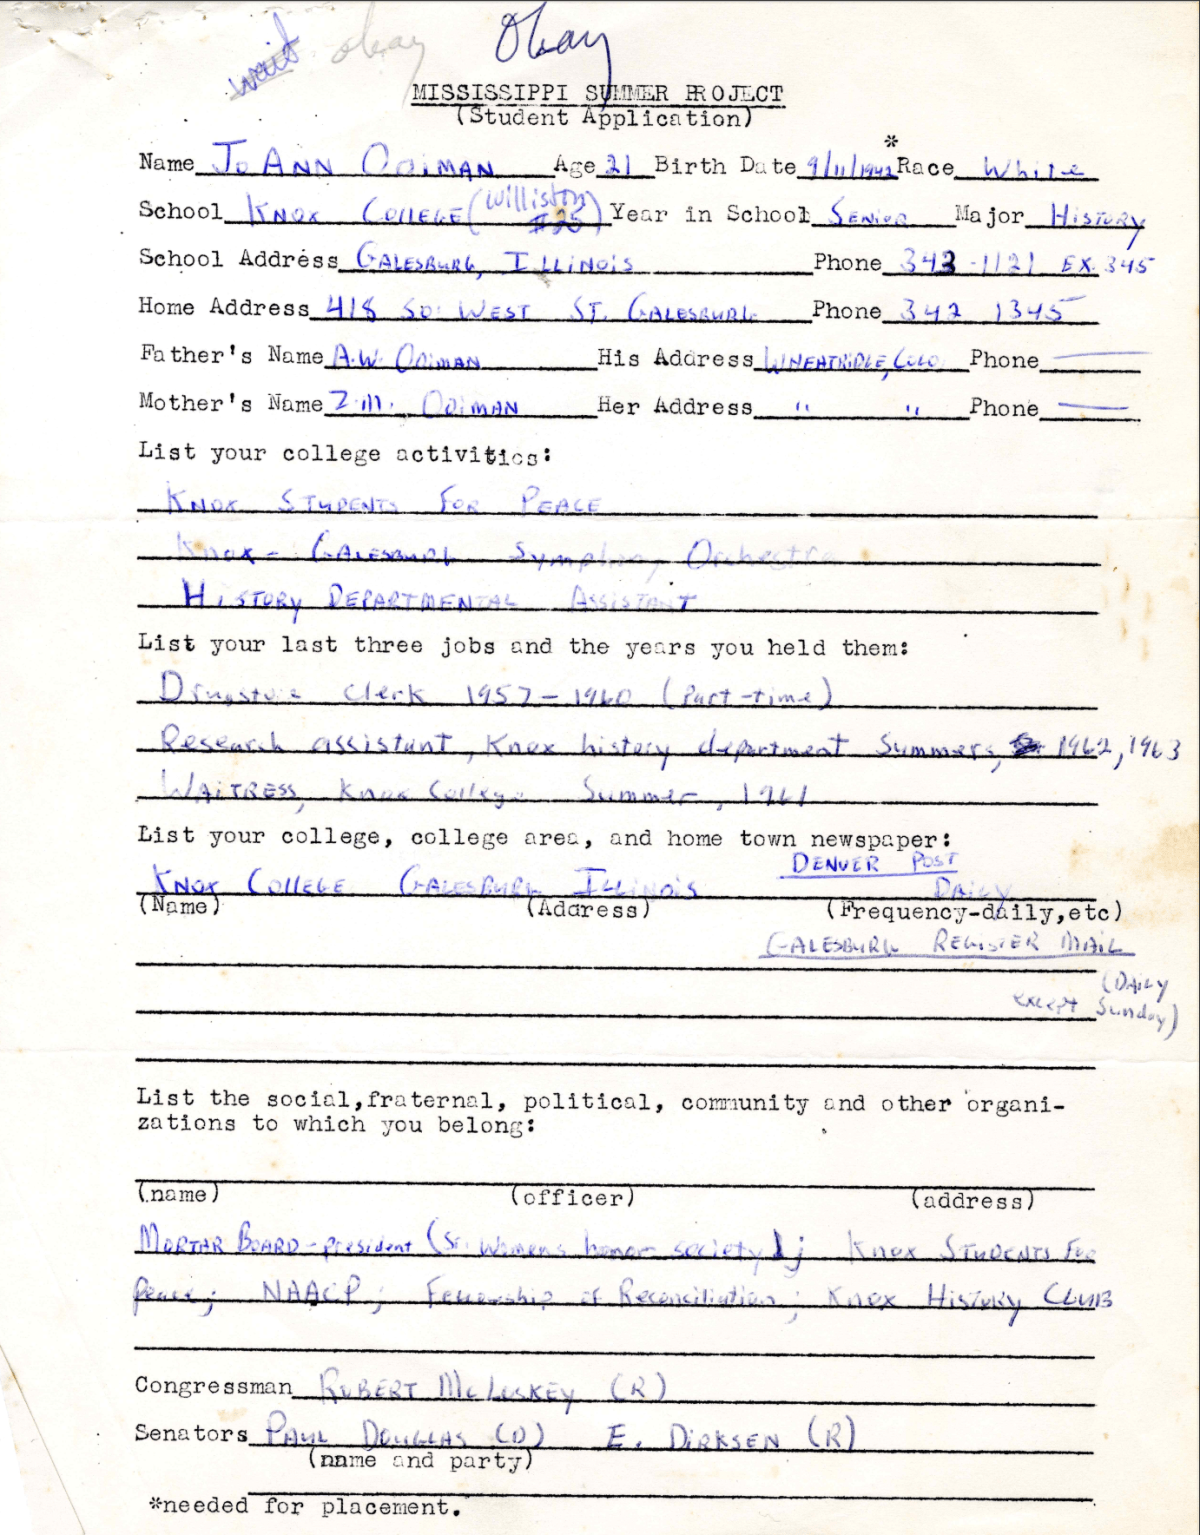 wait okay Okay
MISSISSIPPI SUMMER PROJECT
(Student Application)
Name Jo Ann Ooiman Age 21 Birth Date 9/11/1942 *Race White
School Knox College (Williston) #25 Year in School Senior Major History
School Address Galesburg, Illinois Phone 343-1121 Ex. 345
Home Address 418 So. West St. Galesburg Phone 342 1345
Father's Name A.W. Ooiman His Address Wheatridge, Colo Phone
Mother's Name Z.M. Ooiman Her Address " " Phone
List your college activities:
Knox Students For Peace
Knox-Galesburg Symphony Orchestra
History Departmental Assistant
List your last three jobs and the years you held them:
Drugstore clerk 1957-1960 (Part-time)
Research assistant, Knox history department Summers, 1962, 1963
Waitress, Knox College Summer, 1961
List your college, college area, and home town newspaper:
Denver Post
Knox College Galesburg Illinois Daily
(Name) (Address) (Frequency-daily,etc)
Galesburg Register Mail
(Daily
except Sunday)
List the social,fraternal, political, community and other organi-
zations to which you belong:
(name) (officer) (address)
Mortar Board-president (Sr. Womens honor society); Knox Students For
Peace; NAACP; Fellowship of Reconciliation; Knox History Club
Congressman Robert McLoskey (R)
Senators Paul Douglas (D) E. Dirksen (R)
(name and party)
*needed for placement.